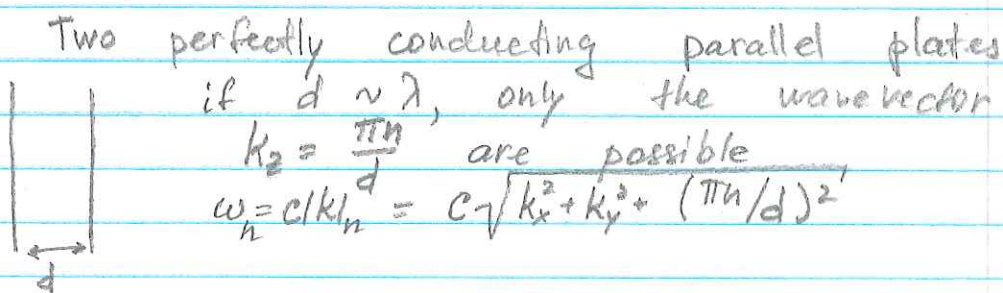 Two perfectly conducting parallel plates
if d ~ λ, only the wavevector
k_z = πn/d are possible
ω_n = c|k|_n = c√(k_x² + k_y² + (πn/d)²)
d